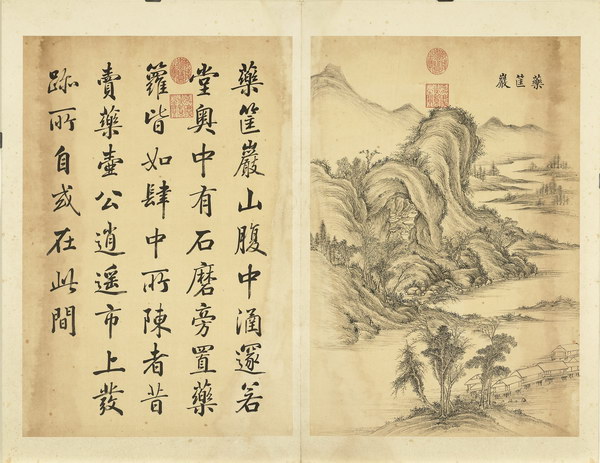 藥筐巖
藥筐巖山腹中涵邃若
堂奧中有石磨旁置藥
籮皆如肆中所陳者昔
賣藥壺公逍遙市上發
跡所自或在此間